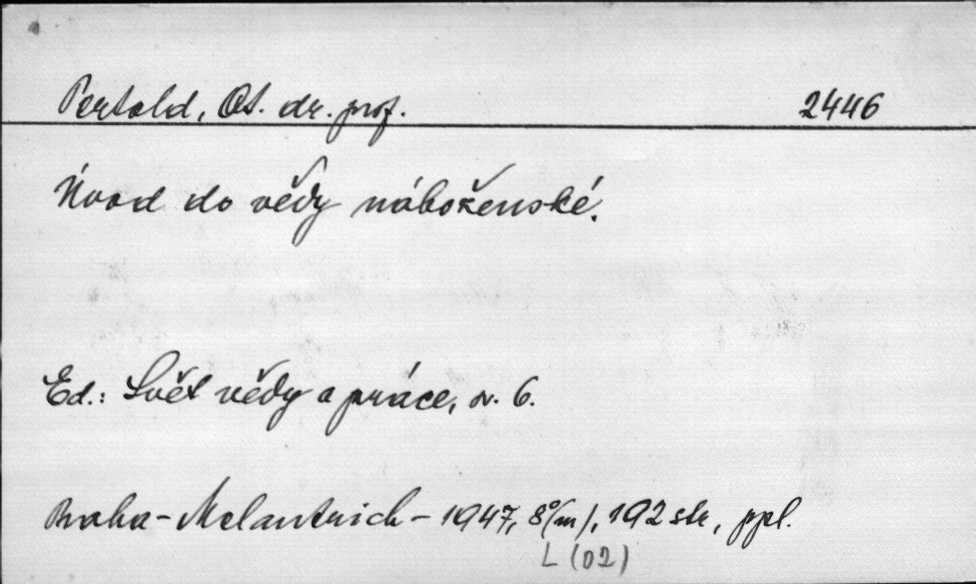 Pertold, Ot. dr. prof. 2446
Úvod do vědy náboženské.
Ed.: Svět vědy a práce, sv. 6.
Praha - Melantrich - 1947, 8°(m), 192 str, ppl.
L (02)